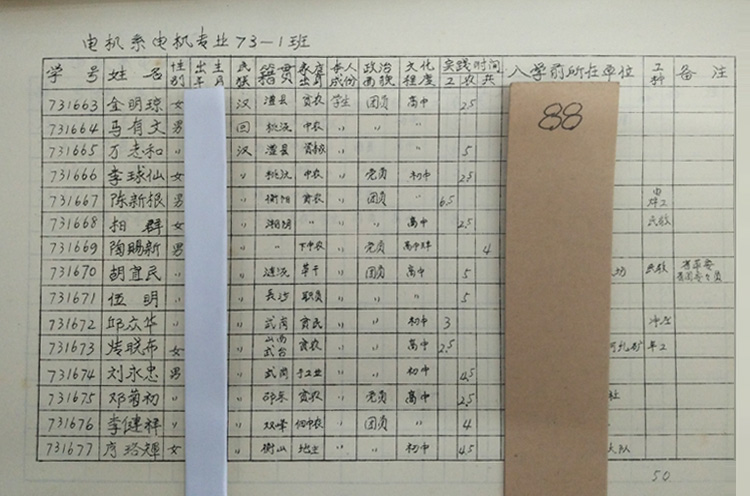 电机系电机专业73-1班
学号 姓名 性别 出生年月 民族 籍贯 家庭出身 本人成份 政治面貌 文化程度 实践时间 工 农 共 入学前所在单位 工种 备注
731663 金明琼 女 汉 澧县 贫农 学生 团员 高中 2.5
731664 马有文 男 回 桃沅 中农 〃 〃 〃
731665 万志和 〃 汉 澧县 〃 〃 〃 5
731666 李球仙 女 〃 桃沅 中农 〃 党员 初中 2.5
731667 陈新根 男 〃 衡阳 贫农 〃 团员 〃 6.5 电焊工
731668 柏群 女 〃 湘阴 〃 〃 〃 高中 2.5 民教
731669 陶赐新 男 〃 〃 下中农 〃 党员 高中 4
731670 胡宜民 〃 〃 涟沅 革干 〃 团员 高中 5 民教
731671 伍明 〃 〃 长沙 职员 〃 〃 〃 5
731672 邱众华 〃 〃 武岗 贫民 〃 〃 初中 3
731673 联布 女 〃 贫农 〃 〃 高中 2.5 矿 车工
731674 刘永忠 男 〃 武岗 手工业 〃 〃 初中 4.5
731675 邓菊初 〃 〃 邵东 贫农 〃 党员 高中 2.5 社
731676 李健祥 〃 〃 双峰 佃中农 〃 团员 〃 4
731677 女 〃 衡山 地主 〃 〃 初中 4.5 大队
88
50